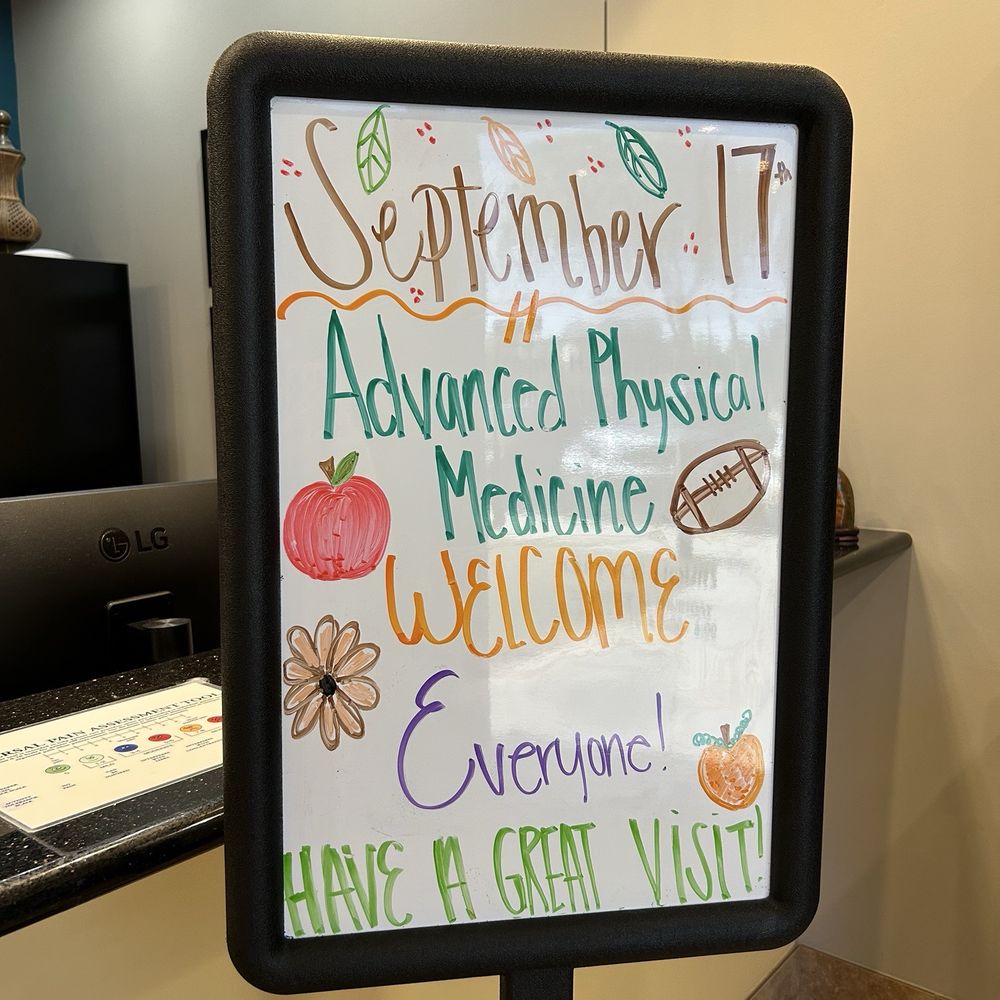 September 17th
Advanced Physical
Medicine
WELCOME
Everyone!
HAVE A GREAT VISIT!
LG
RSAL PAIN ASSESSMENT TOOL